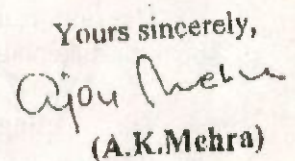 Yours sincerely,
Ajou Mehra
(A.K.Mehra)